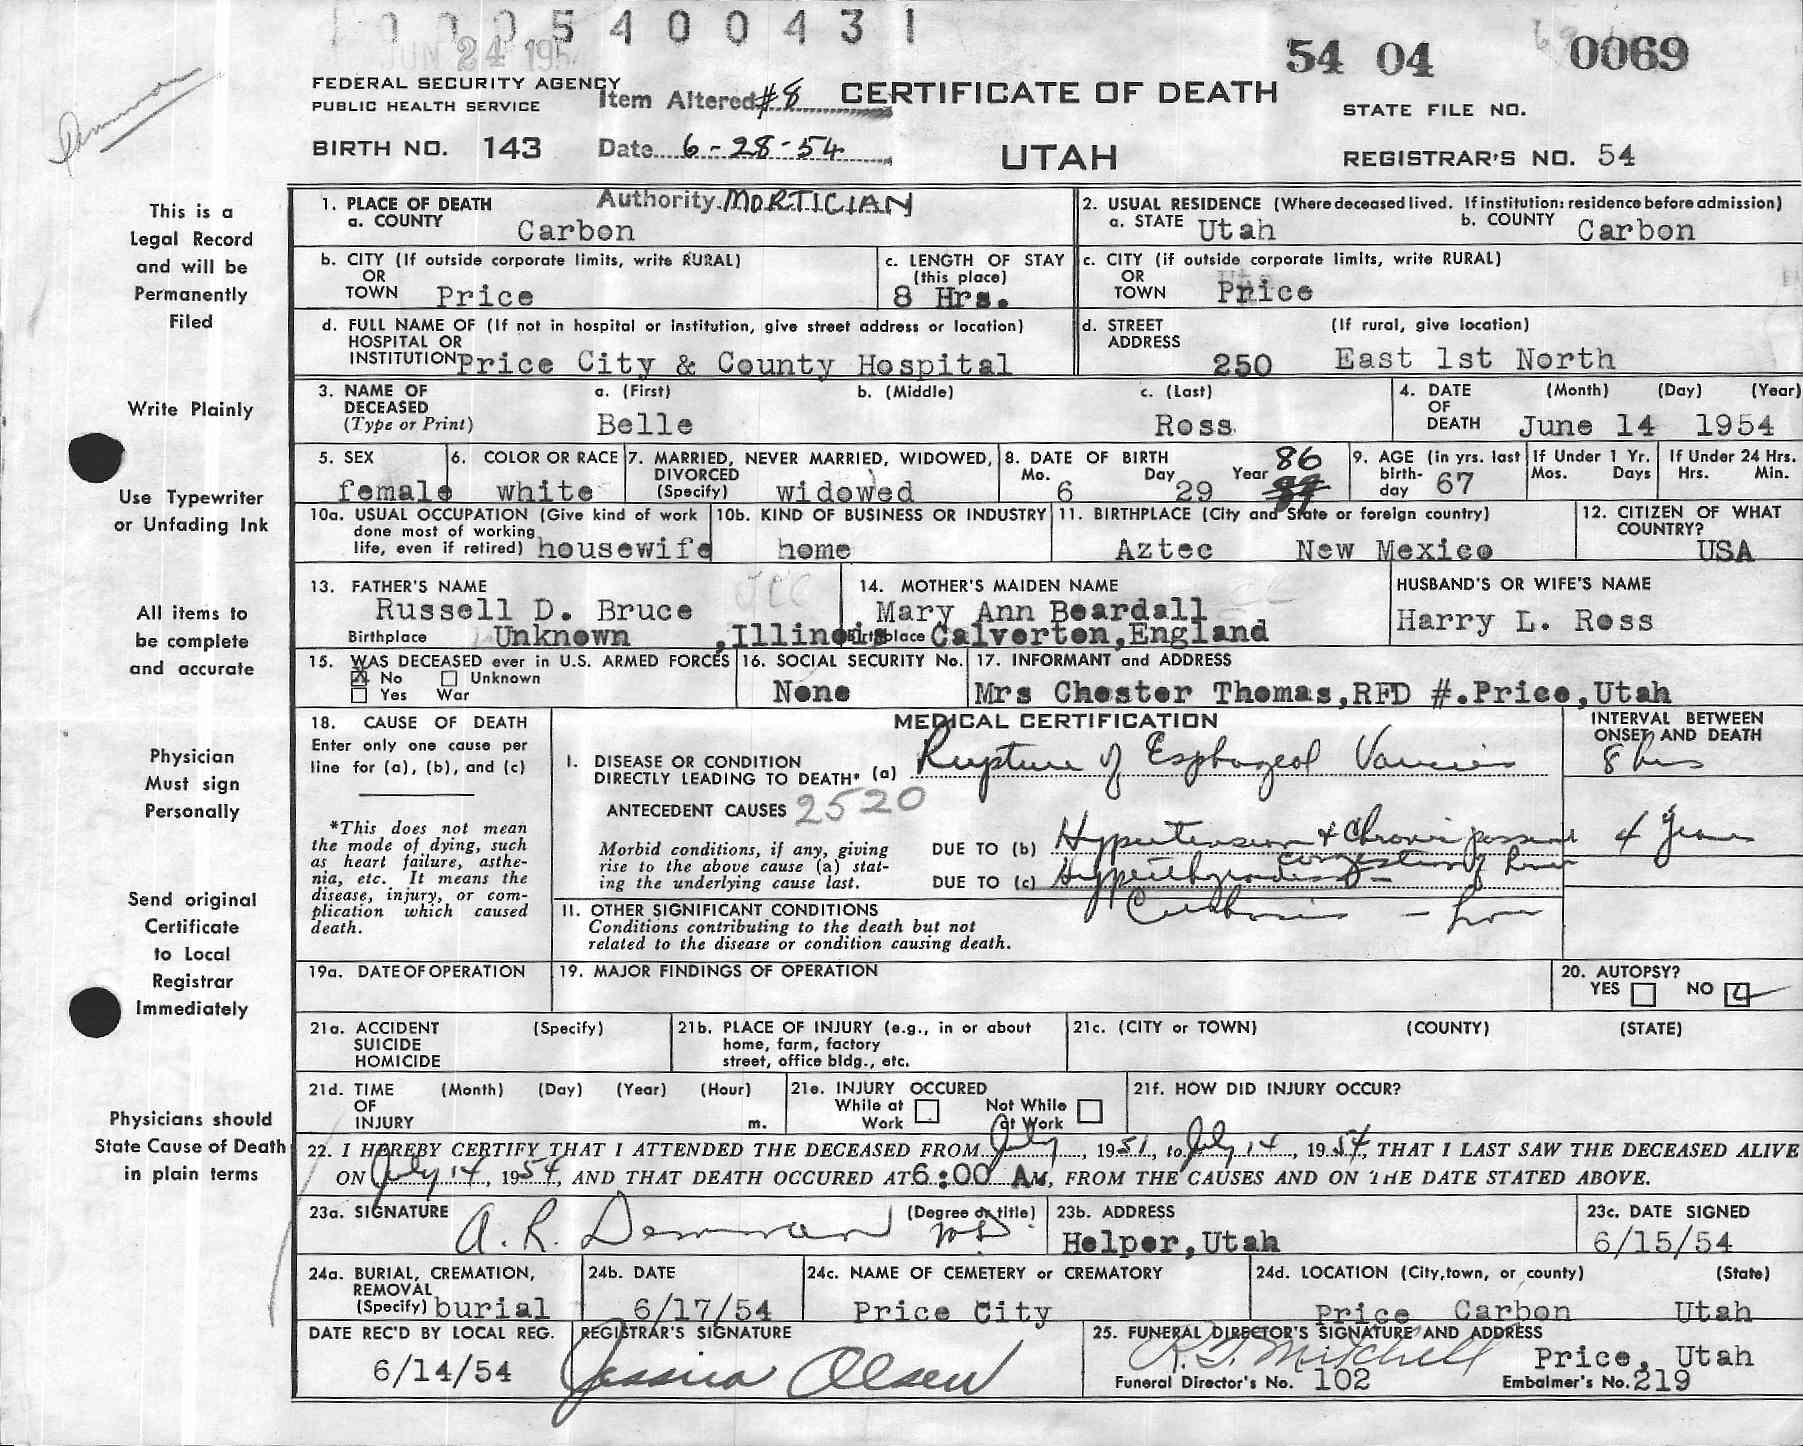 5 4 0 0 4 3 1
JUN 24 195
54 04 0069
Demman
FEDERAL SECURITY AGENCY
PUBLIC HEALTH SERVICE
Item Altered #8
CERTIFICATE OF DEATH
STATE FILE NO.
BIRTH NO. 143
Date 6-28-54
UTAH
REGISTRAR'S NO. 54
This is a
Legal Record
and will be
Permanently
Filed
Write Plainly
Use Typewriter
or Unfading Ink
All items to
be complete
and accurate
Physician
Must sign
Personally
Send original
Certificate
to Local
Registrar
Immediately
Physicians should
State Cause of Death
in plain terms
1. PLACE OF DEATH
a. COUNTY Carbon
Authority MORTICIAN
2. USUAL RESIDENCE (Where deceased lived. If institution: residence before admission)
a. STATE Utah b. COUNTY Carbon
b. CITY (If outside corporate limits, write RURAL)
OR
TOWN Price
c. LENGTH OF STAY
(this place)
8 Hrs.
c. CITY (if outside corporate limits, write RURAL)
OR
TOWN Price
d. FULL NAME OF (If not in hospital or institution, give street address or location)
HOSPITAL OR
INSTITUTION Price City & County Hospital
d. STREET (If rural, give location)
ADDRESS
250 East 1st North
3. NAME OF a. (First) b. (Middle) c. (Last)
DECEASED
(Type or Print) Belle Ross
4. DATE (Month) (Day) (Year)
OF
DEATH June 14 1954
5. SEX
female
6. COLOR OR RACE
white
7. MARRIED, NEVER MARRIED, WIDOWED,
DIVORCED
(Specify) widowed
8. DATE OF BIRTH 86
Mo. Day Year
6 29
9. AGE (in yrs. last
birth-
day 67
If Under 1 Yr.
Mos. Days
If Under 24 Hrs.
Hrs. Min.
10a. USUAL OCCUPATION (Give kind of work
done most of working
life, even if retired) housewife
10b. KIND OF BUSINESS OR INDUSTRY
home
11. BIRTHPLACE (City and State or foreign country)
Aztec New Mexico
12. CITIZEN OF WHAT
COUNTRY?
USA
13. FATHER'S NAME
Russell D. Bruce
Birthplace Unknown ,Illinois
14. MOTHER'S MAIDEN NAME
Mary Ann Beardall
Birthplace Calverton,England
HUSBAND'S OR WIFE'S NAME
Harry L. Ross
15. WAS DECEASED ever in U.S. ARMED FORCES
X No Unknown
Yes War
16. SOCIAL SECURITY No.
None
17. INFORMANT and ADDRESS
Mrs Chester Thomas,RFD #.Price,Utah
18. CAUSE OF DEATH
Enter only one cause per
line for (a), (b), and (c)
*This does not mean
the mode of dying, such
as heart failure, asthe-
nia, etc. It means the
disease, injury, or com-
plication which caused
death.
MEDICAL CERTIFICATION
INTERVAL BETWEEN
ONSET AND DEATH
I. DISEASE OR CONDITION
DIRECTLY LEADING TO DEATH* (a) Rupture of Esophageal Varices 8 hrs
ANTECEDENT CAUSES 2520
Morbid conditions, if any, giving
rise to the above cause (a) stat-
ing the underlying cause last.
DUE TO (b) Hypertension & Chronic passive 4 years
congestion of liver
DUE TO (c) Hyperthyroidism
II. OTHER SIGNIFICANT CONDITIONS
Conditions contributing to the death but not
related to the disease or condition causing death.
Cirrhosis - liver
19a. DATE OF OPERATION
19. MAJOR FINDINGS OF OPERATION
20. AUTOPSY?
YES NO
21a. ACCIDENT (Specify)
SUICIDE
HOMICIDE
21b. PLACE OF INJURY (e.g., in or about
home, farm, factory
street, office bldg., etc.
21c. (CITY or TOWN) (COUNTY) (STATE)
21d. TIME (Month) (Day) (Year) (Hour)
OF
INJURY m.
21e. INJURY OCCURED
While at Not While
Work at Work
21f. HOW DID INJURY OCCUR?
22. I HEREBY CERTIFY THAT I ATTENDED THE DECEASED FROM July, 1951, to July 14, 1954, THAT I LAST SAW THE DECEASED ALIVE
ON July 14, 1954, AND THAT DEATH OCCURED AT 6:00 AM, FROM THE CAUSES AND ON THE DATE STATED ABOVE.
23a. SIGNATURE (Degree or title)
A. R. Demman MD
23b. ADDRESS
Helper,Utah
23c. DATE SIGNED
6/15/54
24a. BURIAL, CREMATION,
REMOVAL
(Specify) burial
24b. DATE
6/17/54
24c. NAME OF CEMETERY or CREMATORY
Price City
24d. LOCATION (City,town, or county) (State)
Price Carbon Utah
DATE REC'D BY LOCAL REG.
6/14/54
REGISTRAR'S SIGNATURE
Jessica Olsen
25. FUNERAL DIRECTOR'S SIGNATURE AND ADDRESS
R. T. Mitchell Price, Utah
Funeral Director's No. 102 Embalmer's No. 219